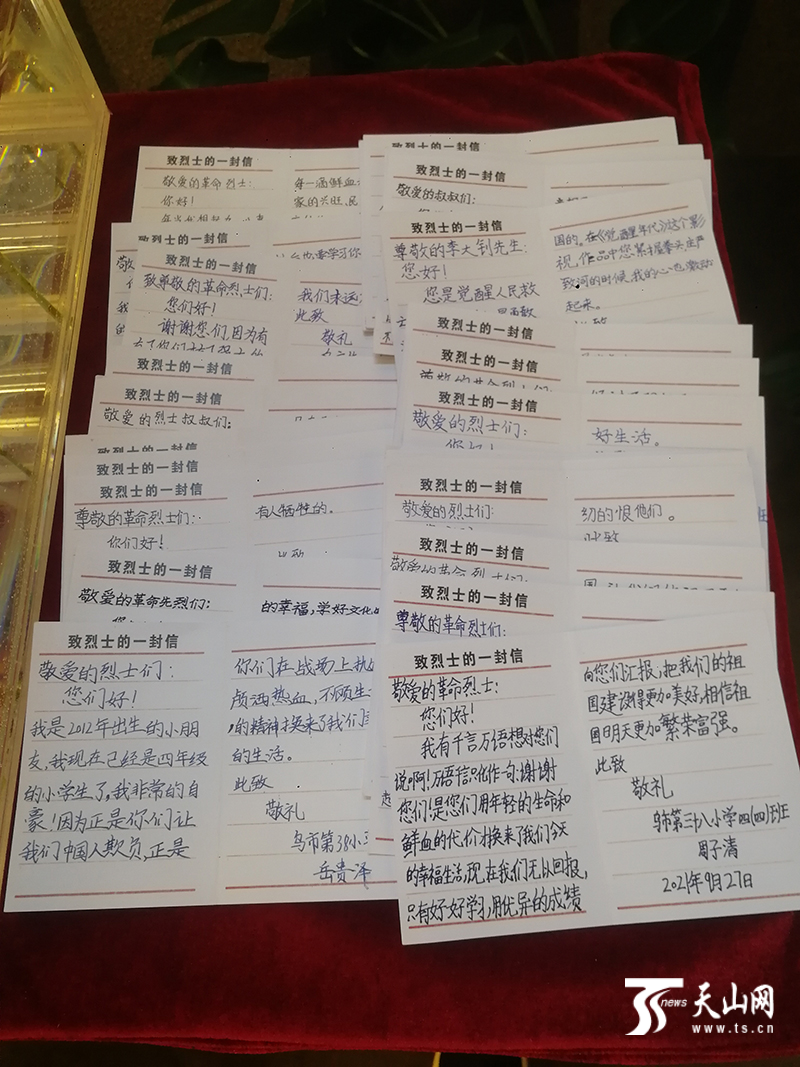 致烈士的一封信
敬爱的革命烈士：
你好！
每一滴鲜血
家的兴旺、民
致烈士的一封信
致烈士的一封信
致尊敬的革命烈士们：
您们好！
谢谢您们，因为有
我们永远
此致
敬礼
致烈士的一封信
致烈士的一封信
敬爱的烈士叔叔们：
致烈士的一封信
致烈士的一封信
致烈士的一封信
尊敬的革命烈士们：
你们好！
有人牺牲的。
致烈士的一封信
敬爱的革命先烈们：
的幸福，学好文化
致烈士的一封信
敬爱的烈士们：
您们好！
我是2012年出生的小朋
友，我现在已经是四年级
的小学生了，我非常的自
豪！因为正是你们让
我们中国人欺负，正是
你们在战场上抛
颅洒热血，不顾生
的精神才换来了我们
的生活。
此致
敬礼
乌市第38小
岳贵泽
致烈士的一封信
致烈士的一封信
敬爱的叔叔们：
致烈士的一封信
尊敬的李大钊先生：
您好！
您是觉醒人民救
国的。在《觉醒年代》这个影
视作品中您紧握拳头庄严
致词的时候，我的心也激动
起来。
致烈士的一封信
致烈士的一封信
致烈士的一封信
敬爱的烈士们：
您好！
好生活。
致烈士的一封信
敬爱的烈士们：
幼的恨他们。
此致
致烈士的一封信
敬爱的革命烈士们：
致烈士的一封信
尊敬的革命烈士们：
致烈士的一封信
敬爱的革命烈士：
您们好！
我有千言万语想对您们
说啊！万语信只化作一句：谢谢
您们！是您们用年轻的生命和
鲜血的代价才换来了我们今天
的幸福生活，现在我们无以回报，
只有好好学习，用优异的成绩
向您们汇报，把我们的祖
国建设得更加美好，相信祖
国明天更加繁荣富强。
此致
敬礼
乌市第三十八小学四(四)班
周子清
2021年9月27日
TS news 天山网
www.ts.cn